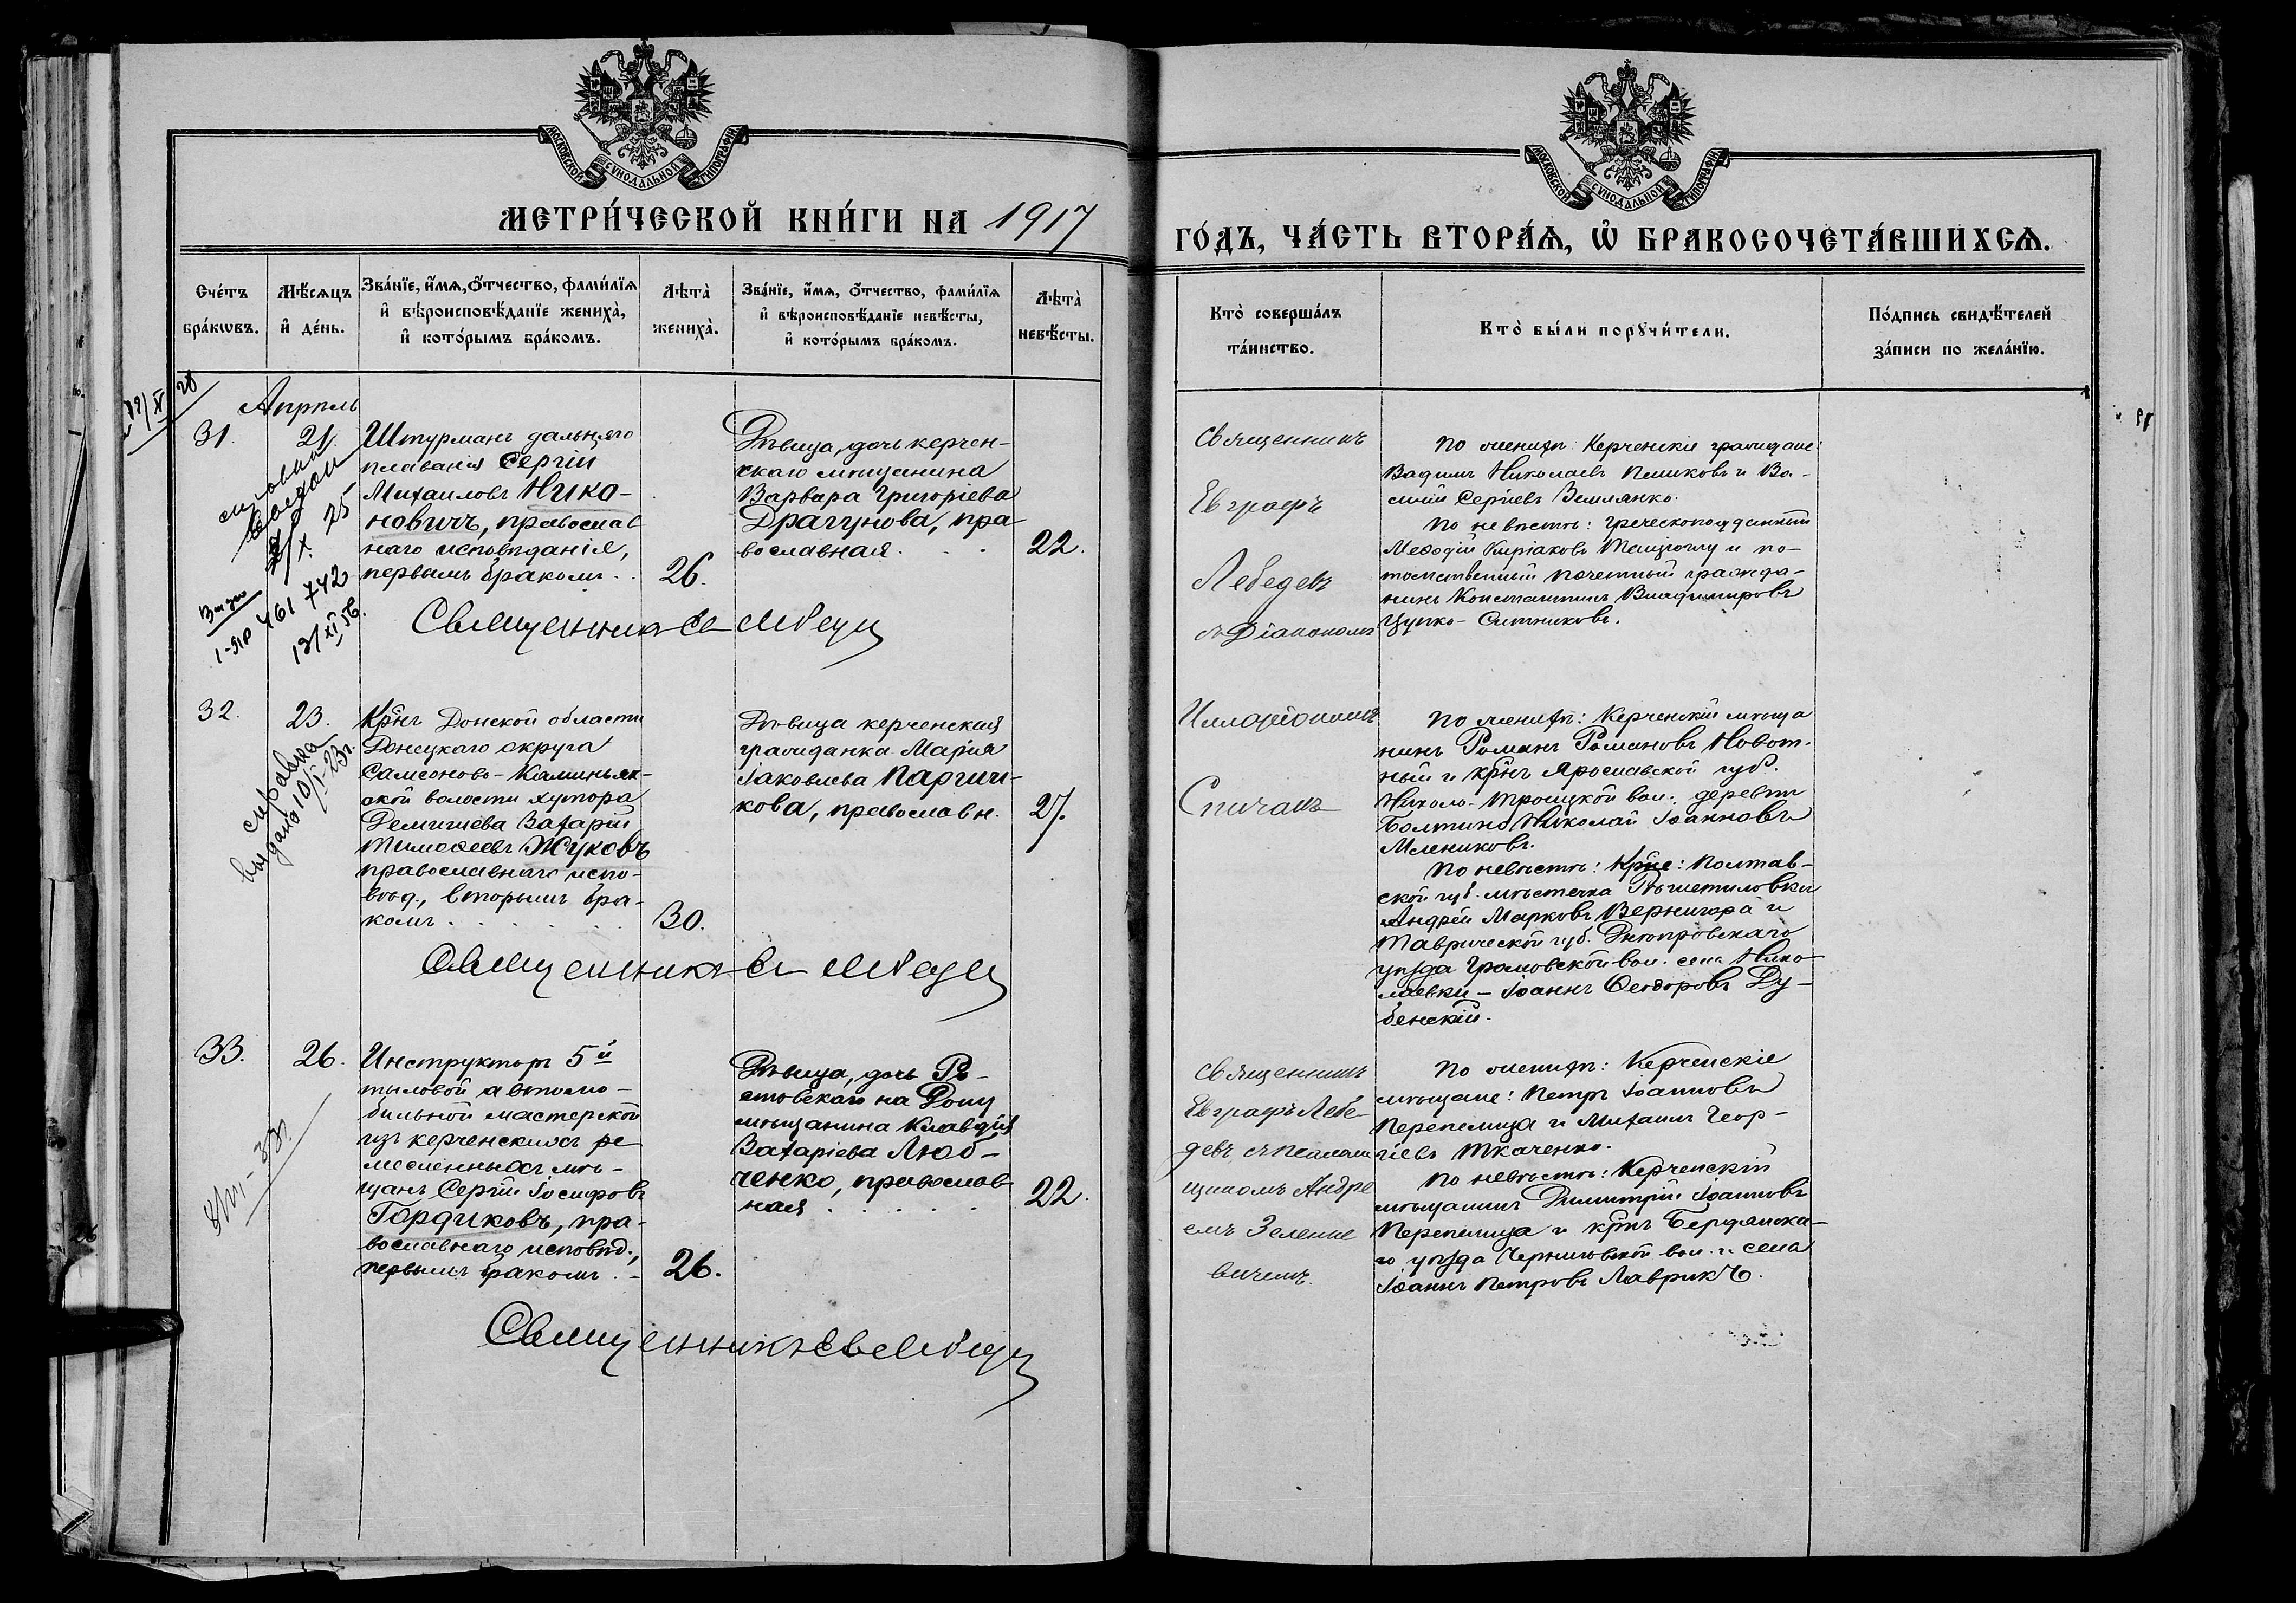 МОСКОВСКОЙ СѴНОДАЛЬНОЙ ТИПОГРАФІИ
МЕТРИ́ЧЕСКОЙ КНИ́ГИ НА 1917
Сче́тъ бра́кѡвъ.
Мѣ́сяцъ и҆ де́нь.
Зва́нїе, и҆́мѧ, ѻ҆́тчество, фами́лїѧ
и҆ вѣроисповѣ́данїе жениха̀,
и҆ кото́рымъ бра́комъ.
Лѣта̀ жениха̀.
Зва́нїе, и҆́мѧ, ѻ҆́тчество, фами́лїѧ
и҆ вѣроисповѣ́данїе невѣ́сты,
и҆ кото́рымъ бра́комъ.
Лѣта̀ невѣ́сты.
Апрѣль
31.
21.
Штурманъ дальняго
плаванія Сергій
Михаиловъ Нико-
новичъ, православ
наго исповѣданія,
первымъ бракомъ. .
26.
Дѣвица, дочь керчен-
скаго мѣщанина
Варвара Григоріева
Драгунова, пра
вославная. . .
22.
1-ЯР 461 742
13/XI 56.
Священникъ Ев Лебедев
32.
23.
Крнъ Донской области
Донецкаго округа
Самсоново-
ской волости хутора
Захарій
Тимоѳеевъ Жуковъ
православнаго испо-
вѣд., вторымъ бра-
комъ . . . . . .
30.
Дѣвица керченская
гражданка Марія
Іаковлева Паргич-
кова, православн.
27.
справка
выдана 10/I-23г.
Священникъ Ев Лебедев
33.
26.
Инструкторъ 5й
тыловой автомо-
бильной мастерской
изъ керченскихъ ре
месленныхъ мѣ-
щанъ Сергій Іосифовъ
Гордиковъ, пра-
вославнаго исповѣд.,
первымъ бракомъ. -
26.
Дѣвица, дочь Ро-
стовскаго на Дону
мѣщанина Клавдія
Захаріева Люб-
ченко, православ
ная . . . . .
22.
Священникъ Ев Лебедев
МОСКОВСКОЙ СѴНОДАЛЬНОЙ ТИПОГРАФІИ
ГО́ДЪ, ЧА́СТЬ ВТОРА́Ѧ, Ѽ БРАКОСОЧЕТА́ВШИХСѦ.
Кто̀ соверша́лъ
та́инство.
Кто̀ бы́ли порꙋчи́тели.
По́дпись свидѣ́телей
за́писи по жела́нїю.
Священникъ
Евграфъ
Лебедевъ
съ Діакономъ
По женихѣ: Керченскіе граждане:
Вадимъ Николаевъ Пшиковъ и Ва-
силій Сергіевъ Землянко.
По невѣстѣ: греческоподданный
Меѳодій Киріаковъ и по-
томственный почетный гражда-
нинъ Константинъ Владимировъ
Цупко-Ситниковъ.
Илларіономъ
Спичакъ
По женихѣ: Керченскій мѣща
нинъ Романъ Романовъ Новот-
ный и крнъ Ярославской губ.
Николо-Троицкой вол., деревни
Болтино Николай Іоанновъ
Мленниковъ.
По невѣстѣ: Крне: Полтав-
ской губ. мѣстечка Рѣшетиловки
Андрей Марковъ Вернигора и
Таврической губ. Днѣпровскаго
уѣзда Громовской вол. села Нико-
лаевки - Іоаннъ Ѳеодоровъ Ду-
бенскій.
Священникъ
Евграфъ Лебе-
девъ съ псалом
щикомъ Андре
емъ Зелене
вичемъ.
По женихѣ: Керченскіе
мѣщане: Петръ Іоанновъ
Перепелица и Михаилъ Геор-
гіевъ Ткаченко.
По невѣстѣ: Керченскій
мѣщанинъ Димитрій Іоанновъ
Перепелица и крнъ Бердянска-
го уѣзда Черниговской вол. и села
Іоаннъ Петровъ Лаврикъ.